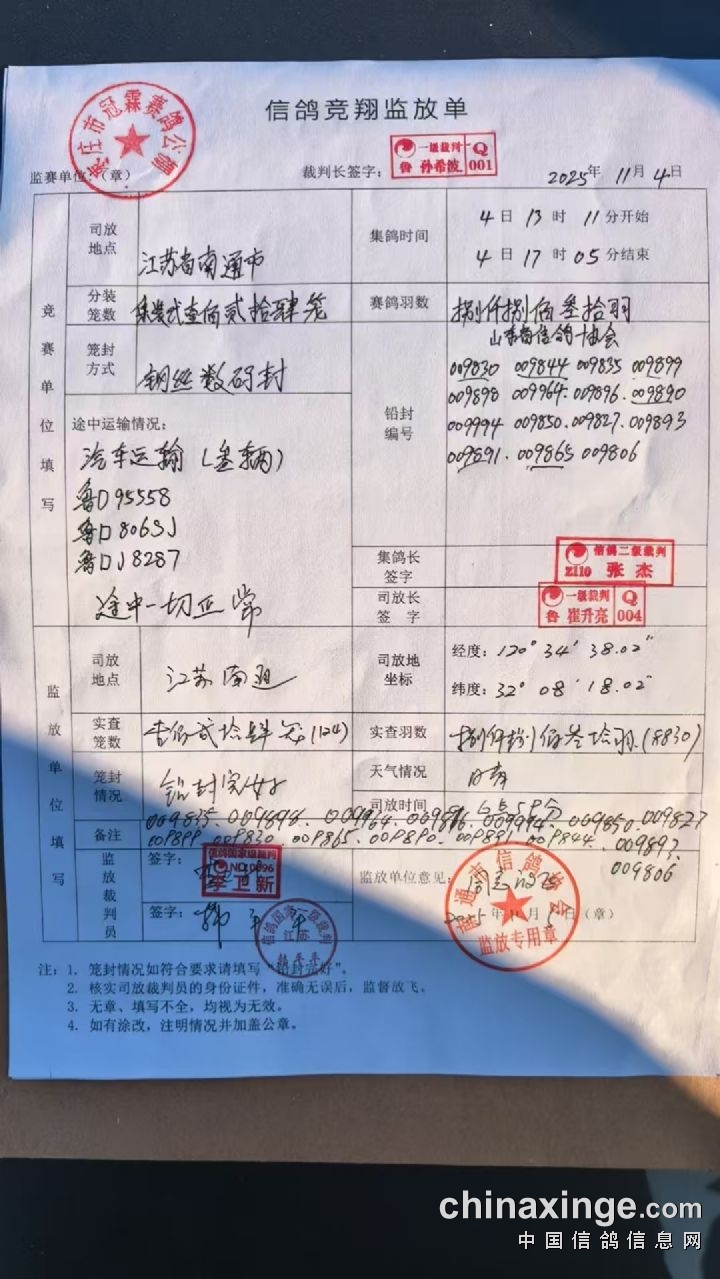 信鸽竞翔监放单
枣庄市冠霖赛鸽公棚
监赛单位:(章)
裁判长签字:
一级裁判 Q
鲁 孙希波 001
2025年 11月 4日
竞赛单位填写
司放地点
江苏省南通市
集鸽时间
4日 13时 11分开始
4日 17时 05分结束
分装笼数
集装式壹佰贰拾肆笼
赛鸽羽数
捌仟捌佰叁拾羽
笼封方式
钢丝数码封
铅封编号
山东省信鸽协会
009830 009844 009835 009899
009898 009964. 009896. 009890
009994 009850. 009827. 009893
009891. 009865 009806
途中运输情况:
汽车运输(叁辆)
鲁D95558
鲁D8063J
鲁DJ8287
途中一切正常
集鸽长签字
信鸽二级裁判
Z110 张杰
司放长签字
一级裁判 Q
鲁 崔升亮 004
监放单位填写
司放地点
江苏南通
司放地坐标
经度: 120° 34′ 38.02″
纬度: 32° 08′ 18.02″
实查笼数
壹佰贰拾肆笼(124)
实查羽数
捌仟捌佰叁拾羽.(8830)
笼封情况
铅封完好
天气情况
晴
司放时间
备注
009835. 009898. 009964. 009896. 009994. 009850. 009827
009899. 009830. 009865. 009890. 009891. 009844. 009893.
009806
监放裁判员
签字:
信鸽国家级裁判
NO.0896
李卫新
签字:
信鸽国家一级裁判
江苏
监放单位意见:
南通市信鸽协会
监放专用章
(章)
注: 1. 笼封情况如符合要求请填写“铅封完好”。
2. 核实司放裁判员的身份证件,准确无误后,监督放飞。
3. 无章、填写不全,均视为无效。
4. 如有涂改,注明情况并加盖公章。
chinaxinge.com
中国信鸽信息网